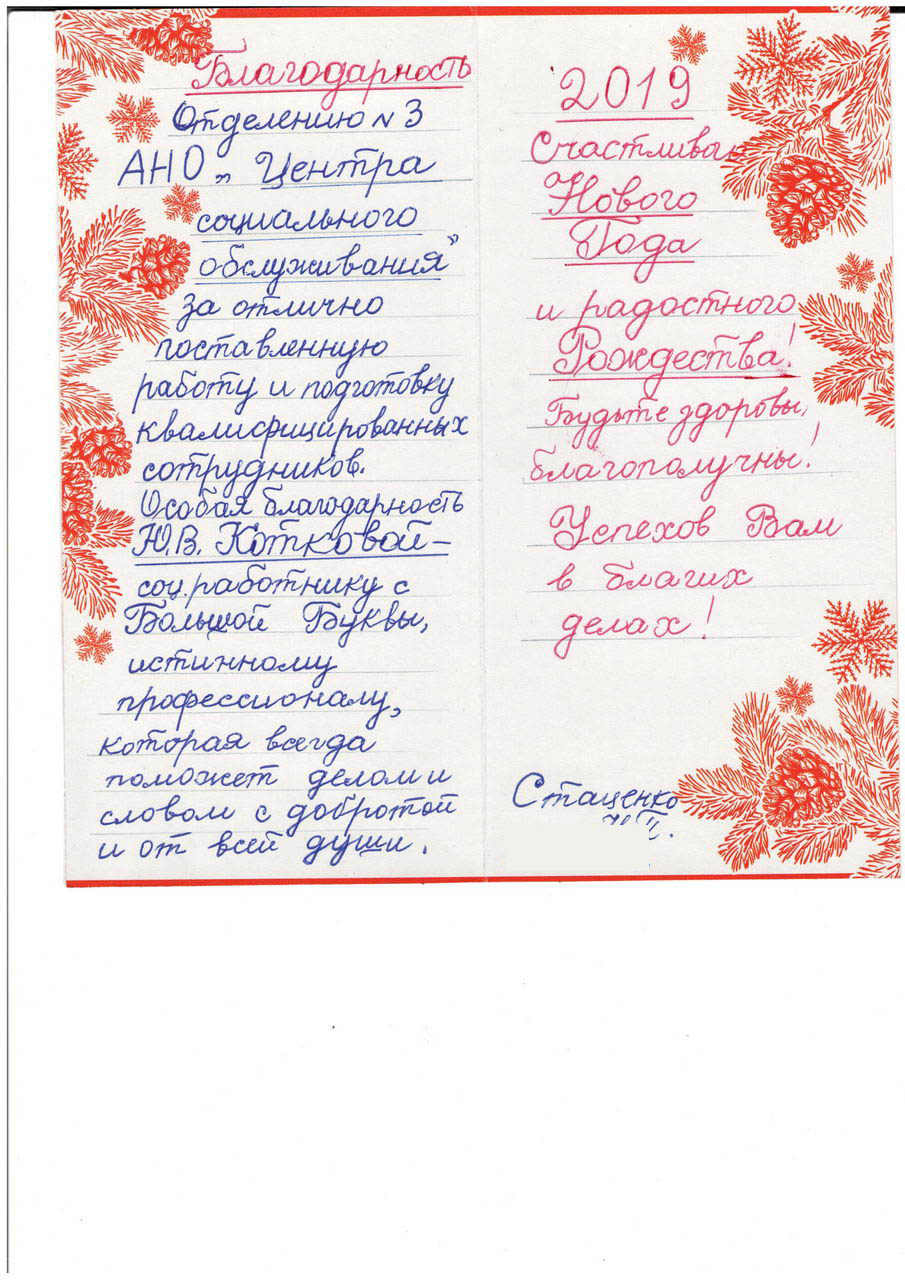 Благодарность
Отделению N 3
АНО „Центра
социального
обслуживания”
за отлично
поставленную
работу и подготовку
квалифицированных
сотрудников.
Особая благодарность
Ю.В. Котковой –
соц. работнику с
Большой Буквы,
истинному
профессионалу,
которая всегда
поможет делом и
словом с добротой
и от всей души.
2019
Счастливого
Нового
Года
и радостного
Рождества!
Будьте здоровы,
благополучны!
Успехов Вам
в благих
делах!
Стаценко